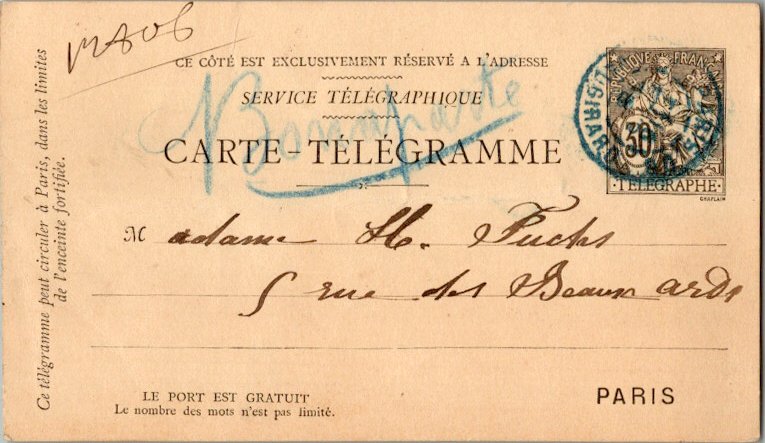 12806
CE CÔTÉ EST EXCLUSIVEMENT RÉSERVÉ A L'ADRESSE
SERVICE TÉLÉGRAPHIQUE
Bonaparte
CARTE-TÉLÉGRAMME
RÉPUBLIQUE FRANÇAISE
30
TÉLÉGRAPHE
CHAPLAIN
Madame H. Fuchs
5 rue des Beaux Arts
PARIS
LE PORT EST GRATUIT
Le nombre des mots n'est pas limité.
Ce télégramme peut circuler à Paris, dans les limites
de l'enceinte fortifiée.